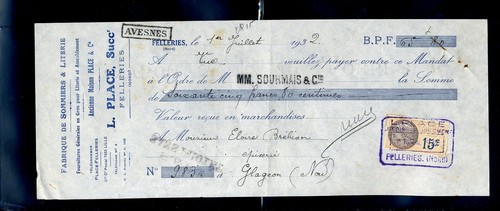 AVESNES
1815
FABRIQUE DE SOMMIERS & LITERIE
Fournitures Générales en Gros pour Literie et Ameublement
Ancienne Maison PLACE & Cie
L. PLACE, Succr
FELLERIES
(NORD)
FELLERIES, le 1er Juillet 1932 B.P.F. 65,80
A vue veuillez payer contre ce Mandat
à l'Ordre de M MM. SOURMAIS & Cie la Somme
de Soixante cinq francs 80 centimes
Valeur reçue en marchandises.
A Monsieur Eloire
épicerie
No 983 à Glageon (Nord)
L. PLACE
15c
FELLERIES. (NORD)